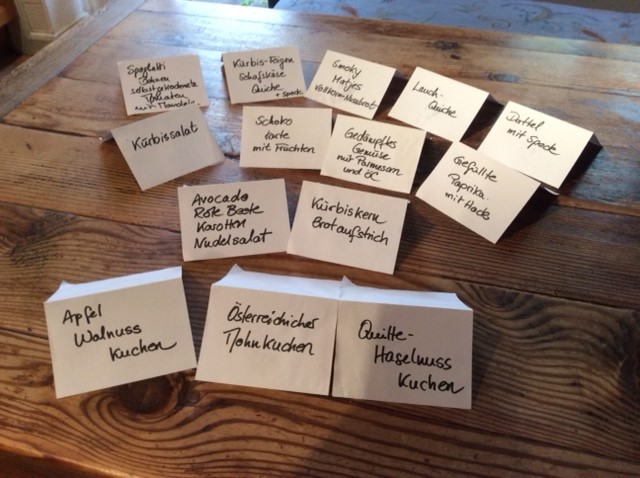 Spaghetti
Bohnen
selbstgetrocknete
Tomaten
mit Mandeln
Kürbis-Feigen
Schafskäse
Quiche
+ Speck
Smoky
Matjes
Vollkorn-Nussbrot
Lauch-
Quiche
Dattel
mit Speck
Kürbissalat
Schoko
tarte
mit Früchten
Gedämpftes
Gemüse
mit Parmesan
und ÖL
Gefüllte
Paprika
mit Hack
Avocado
Rote Beete
Karotten
Nudelsalat
Kürbiskern
Brotaufstrich
Apfel
Walnuss
Kuchen
Österreichischer
Mohnkuchen
Quitte-
Haselnuss
Kuchen